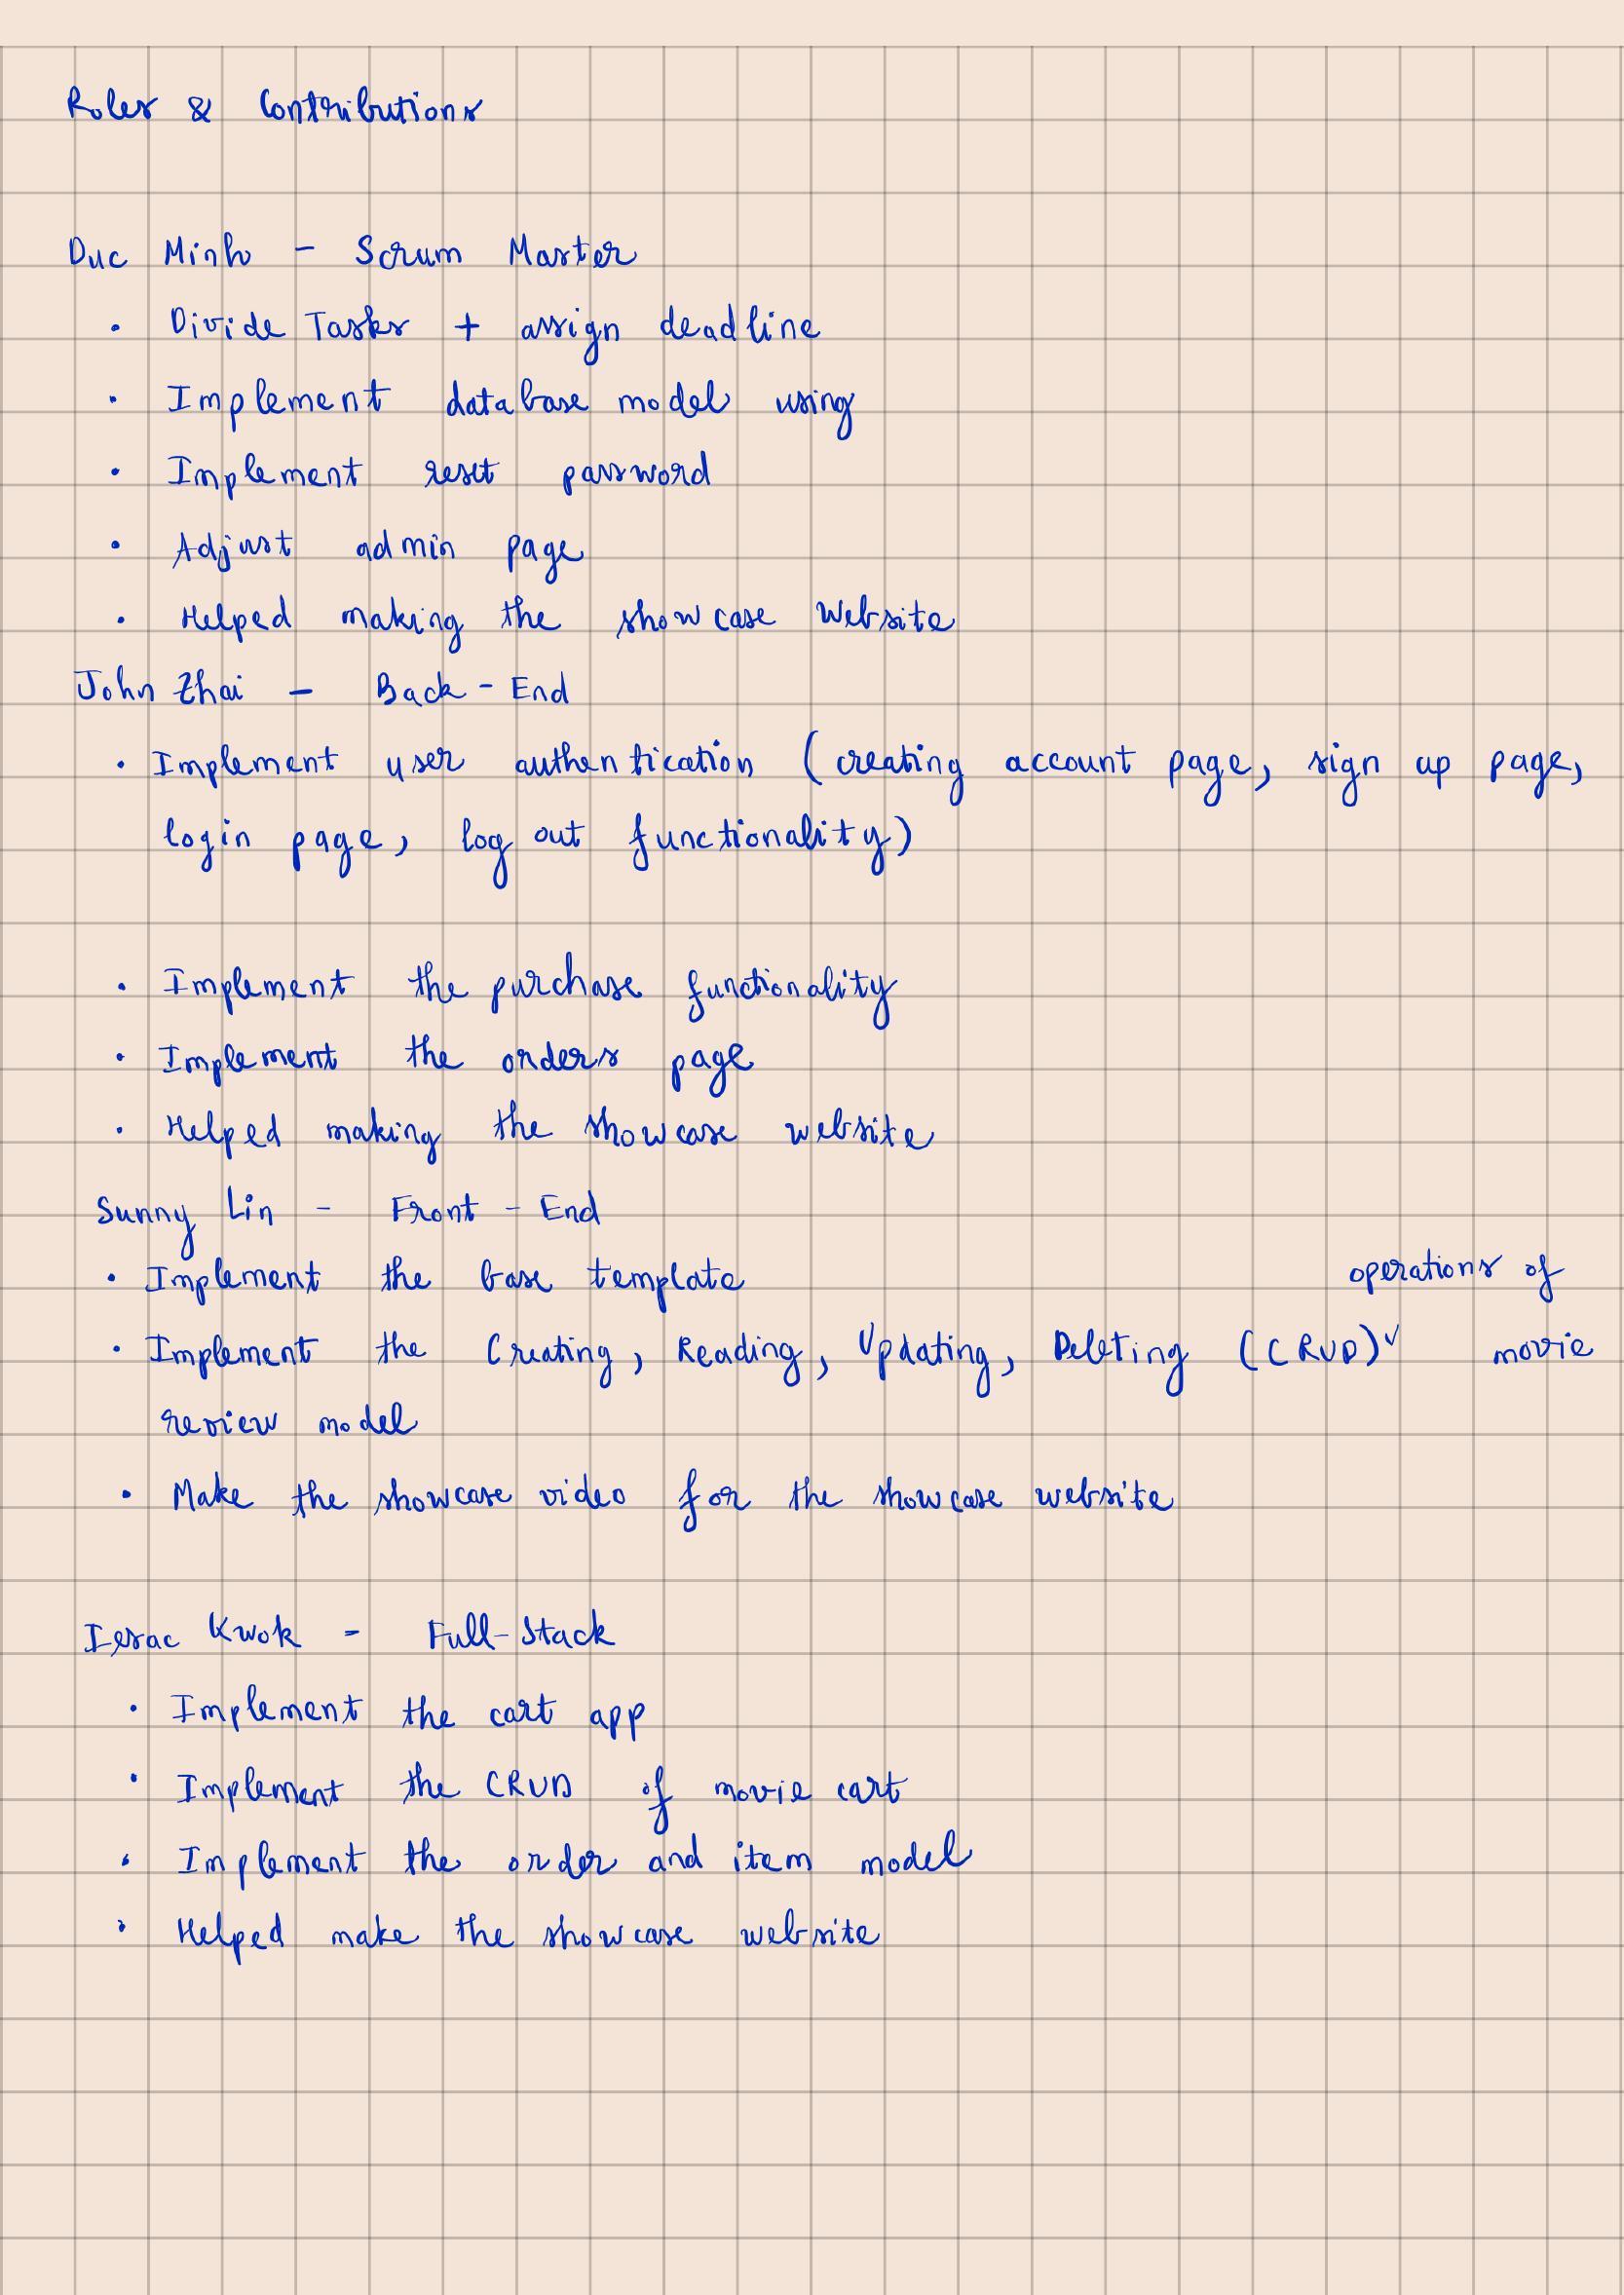 Roles & Contributions
Duc Minh - Scrum Master
• Divide Tasks + assign deadline
• Implement database model using
• Implement reset password
• Adjust admin page
• Helped making the showcase website
John Zhai - Back-End
• Implement user authentication (creating account page, sign up page,
login page, log out functionality)
• Implement the purchase functionality
• Implement the orders page
• Helped making the showcase website
Sunny Lin - Front-End
• Implement the base template
operations of
• Implement the Creating, Reading, Updating, Deleting (CRUD)✓ movie
review model
• Make the showcase video for the showcase website
Kwok - Full-Stack
• Implement the cart app
• Implement the CRUD of movie cart
• Implement the order and item model
• Helped make the showcase website